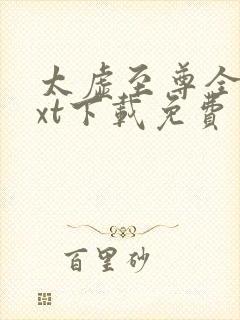 太虚至尊全
xt下载免費
百里砂